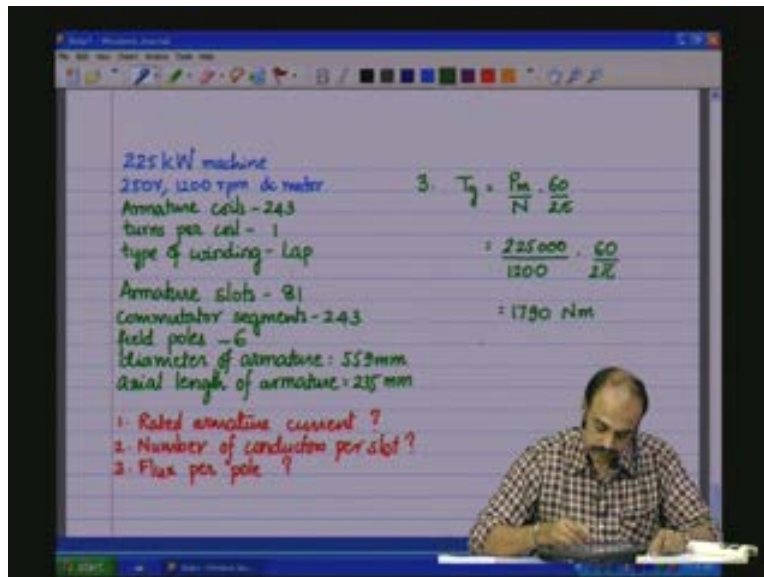 225 kW machine
250V, 1200 rpm dc motor
Armature coils - 243
turns per coil - 1
type of winding - Lap
Armature slots - 81
commutator segments - 243
field poles - 6
diameter of armature = 559mm
axial length of armature = 235 mm
1. Rated armature current ?
2. Number of conductors per slot ?
3. Flux per pole ?
3. Tg = Pm/N . 60/2π
= 225000/1200 . 60/2π
= 1790 Nm
start